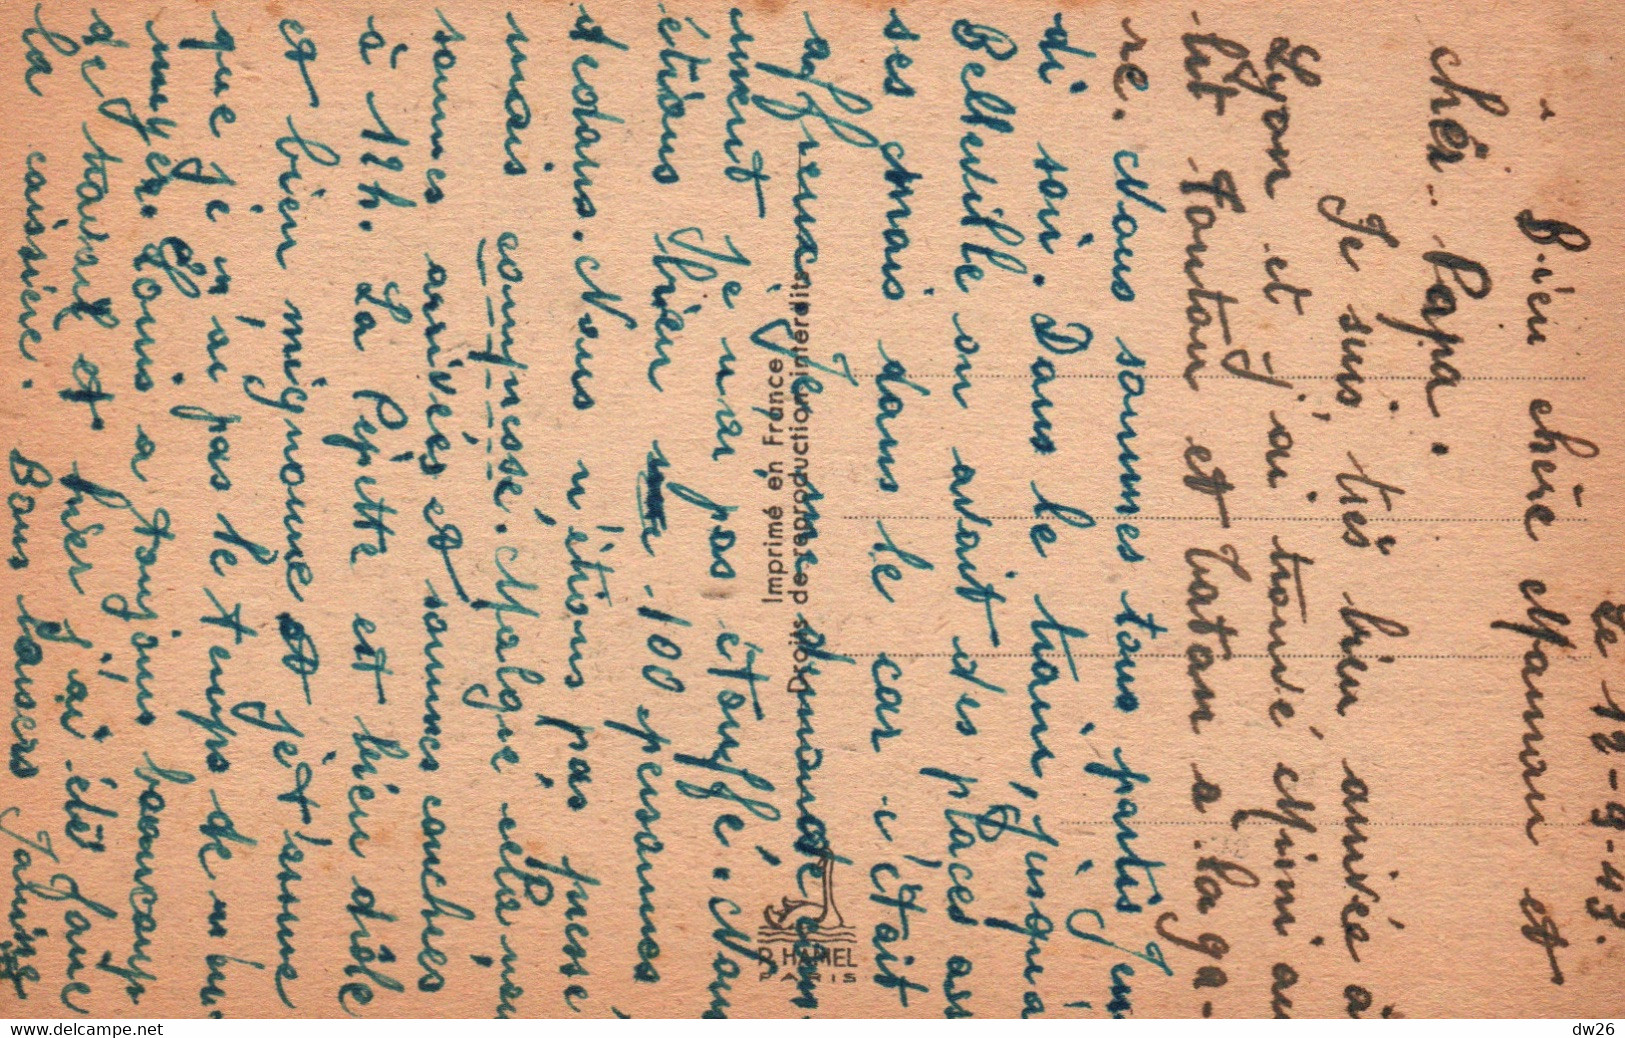 Le 12-9-43.
Bien chère Maman et
cher Papa.
Je suis très bien arrivée à
Lyon et j'ai trouvé Mimi au
lit Tonton et Tatan à la ga-
re. Nous sommes tous partis jeu
di soir. Dans le train, jusqu'à
Belleville on avait des places ass
ses mais dans le car c'était
affreux. Je me demande com
ment je n'ai pas étouffé. Nous
étions bien 100 personnes
dedans. Nous n'étions pas pressé
mais compressé. Malgré cela nous
sommes arrivés et sommes couchés
à 12h. La Pépette est bien drôle
et bien mignonne et je t'assure
que je n'ai pas le temps de m'en
nuyer. Louis a toujours beaucoup
de travail et hier j'ai été faire
la caissière. Bons baisers
Imprimé en France
Droits de reproduction interdits
HAMEL
PARIS
www.delcampe.net
dw26